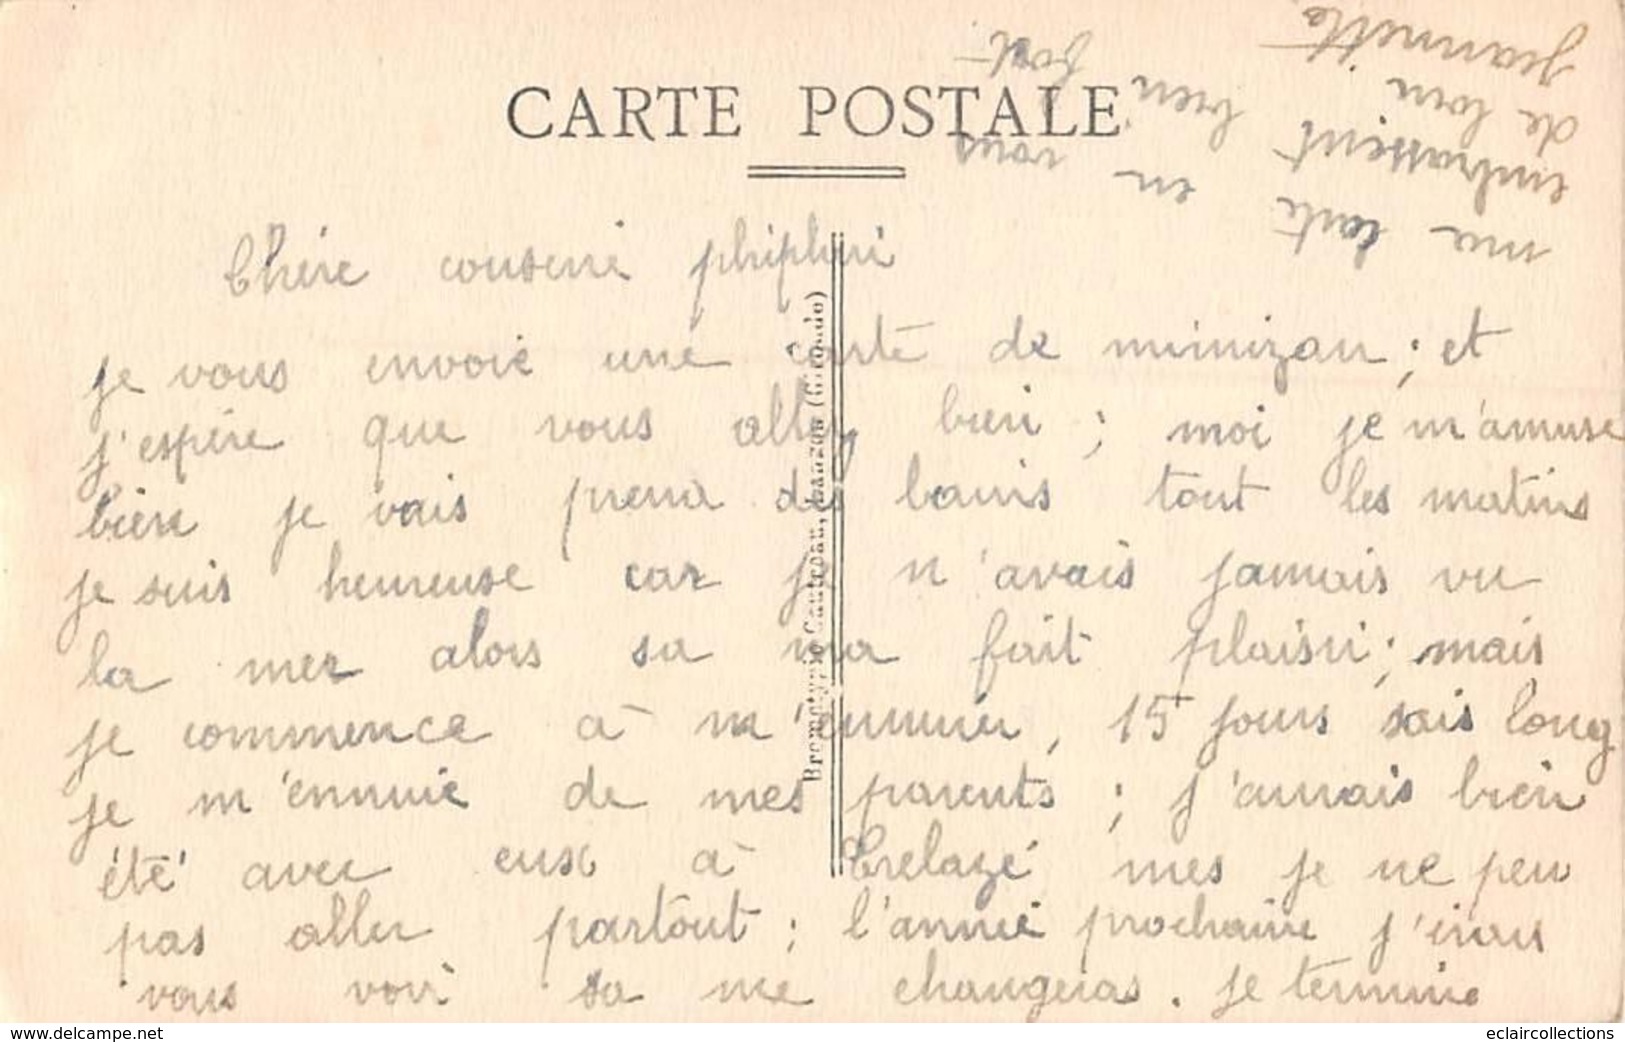 CARTE POSTALE
Chère cousine phiphui
je vous envoie une carte de mimizan ; et
j'espère que vous aller bien ; moi je m'amuse
bien je vais prena des bains tout les matins
je suis heureuse car je n'avais jamais vu
la mer alors sa ma fait plaisir ; mais
je commence à m'ennuier, 15 jours sais long
je m'ennuie de mes parents ; j'aurais bien
été avec eux à Trelazé mes je ne peu
pas aller partout ; l'année prochaine j'irais
vous voir sa me changeras. je termine
ma carte en vous
embrassent bien fort
de loin
jeannette
Bromotypie Gautreau, Langon (Gironde)
www.delcampe.net
eclaircollections